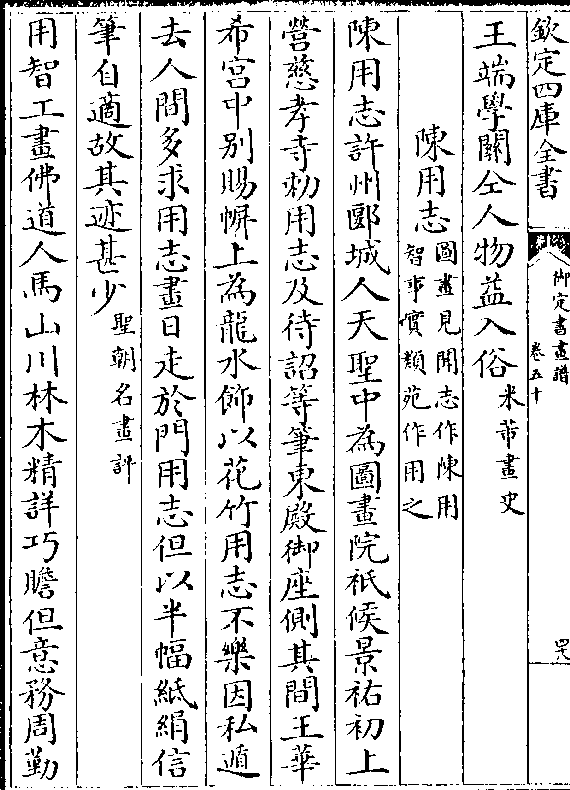 欽定四庫全書
御定書畫譜
卷五十
四六
王端學關仝人物益入俗米芾畫史
陳用志圖畫見聞志作陳用智事實類苑作用之
陳用志許州郾城人天聖中為圖畫院祇候景祐初上
營慈孝寺勅用志及待詔等筆東殿御座側其間王華
希宮中别賜幈上為龍水飾以花竹用志不樂因私遁
去人間多求用志畫日走於門用志但以半幅紙絹信
筆自適故其迹甚少聖朝名畫評
用智工畫佛道人馬山川林木精詳巧贍但意務周勤